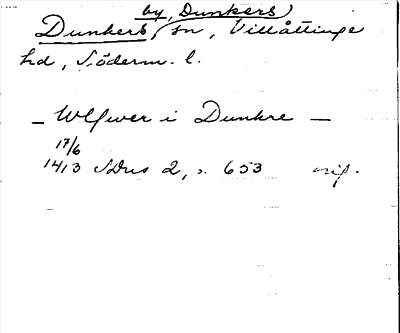 by, Dunkers
Dunkers sn, Villåttinge
hd, Söderm. l.
— Ulfwer i Dunkre —
17/6
1413 SDns 2, s. 653